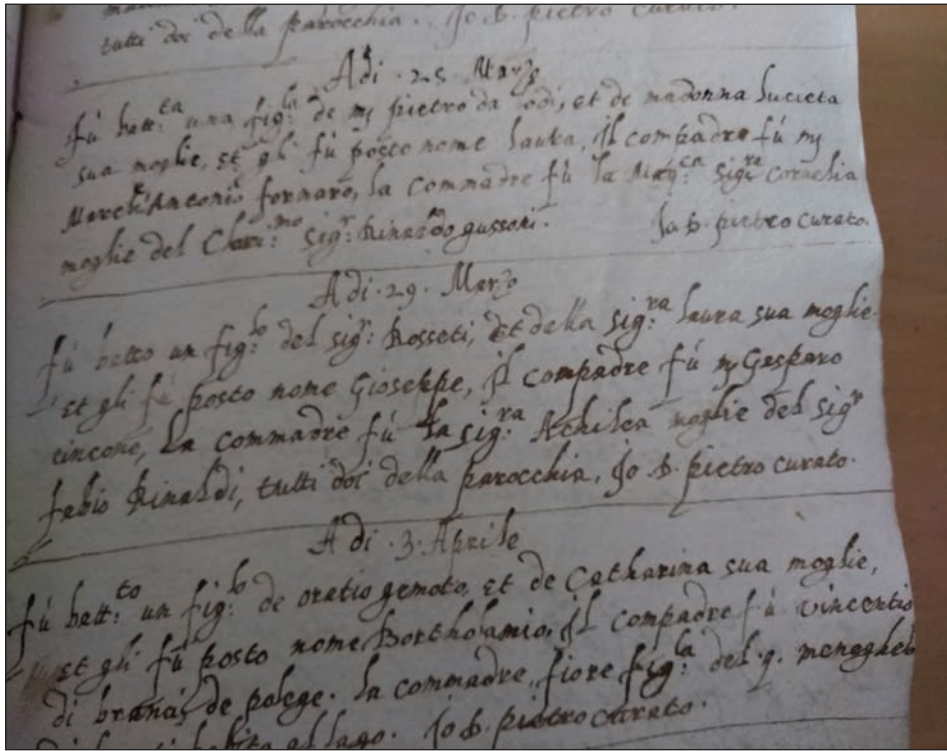 tutti doi della parocchia. Jo b. pietro curato.
Adi .25. Marzo
fù batt:ta una fig:la de mj pietro da Lodi, et de madonna Lucieta
sua moglie, et gli fù posto nome Laura, il compadre fù mj
March'Antonio fornaro, la commadre fù la Sig:ra Cornelia
moglie del Clari:mo Sig:r Rinaldo gussoni. Jo b. pietro curato.
Adi .29. Marzo
fù batto un fig:lo del sig:r Rosseti, et della sig:ra Laura sua moglie
et gli fù posto nome Gioseppe, il compadre fù mj Gasparo
cincone, La commadre fù la sig:ra Achilea moglie del sigr
fabio Rinaldi, tutti doi della parocchia, Jo b. pietro curato.
Adi .3. Aprile
fù batt:to un fig:lo de oratio gemoto, et de Catharina sua moglie,
et gli fù posto nome Bortholamio, il compadre fù vincentio
di brana, de polege. la commadre fiore fig:la del q. meneghel
habita al lago. Jo b. pietro curato.